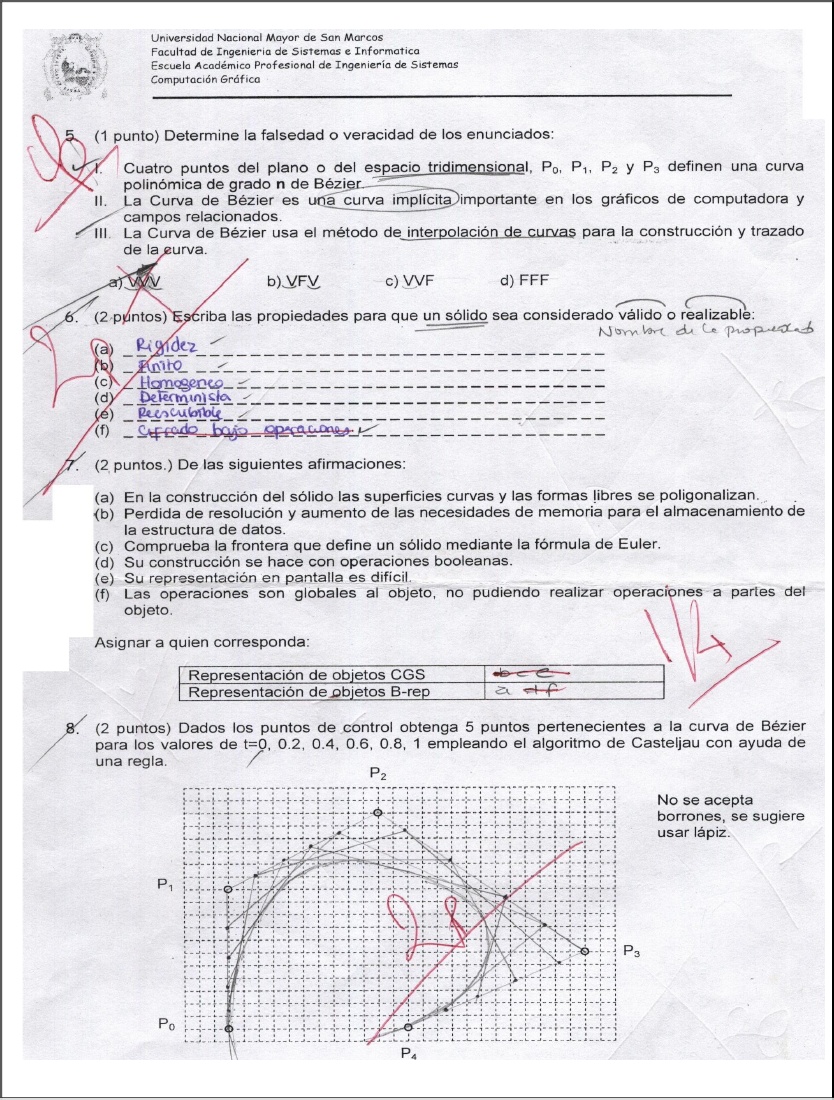 Universidad Nacional Mayor de San Marcos
Facultad de Ingenieria de Sistemas e Informatica
Escuela Académico Profesional de Ingeniería de Sistemas
Computación Gráfica
5. (1 punto) Determine la falsedad o veracidad de los enunciados:
I. Cuatro puntos del plano o del espacio tridimensional, P0, P1, P2 y P3 definen una curva
polinómica de grado n de Bézier.
II. La Curva de Bézier es una curva implícita importante en los gráficos de computadora y
campos relacionados.
III. La Curva de Bézier usa el método de interpolación de curvas para la construcción y trazado
de la curva.
a) VVV b) VFV c) VVF d) FFF
6. (2 puntos) Escriba las propiedades para que un sólido sea considerado válido o realizable:
Nombre de la propiedad
(a) Rigidez
(b) Finito
(c) Homogeneo
(d) Determinista
(e)
(f) bajo operaciones
7. (2 puntos.) De las siguientes afirmaciones:
(a) En la construcción del sólido las superficies curvas y las formas libres se poligonalizan.
(b) Perdida de resolución y aumento de las necesidades de memoria para el almacenamiento de
la estructura de datos.
(c) Comprueba la frontera que define un sólido mediante la fórmula de Euler.
(d) Su construcción se hace con operaciones booleanas.
(e) Su representación en pantalla es difícil.
(f) Las operaciones son globales al objeto, no pudiendo realizar operaciones a partes del
objeto.
Asignar a quien corresponda:
Representación de objetos CGS b c e
Representación de objetos B-rep a d f
8. (2 puntos) Dados los puntos de control obtenga 5 puntos pertenecientes a la curva de Bézier
para los valores de t=0, 0.2, 0.4, 0.6, 0.8, 1 empleando el algoritmo de Casteljau con ayuda de
una regla.
P2
No se acepta
borrones, se sugiere
usar lápiz.
P1
P3
P0
P4